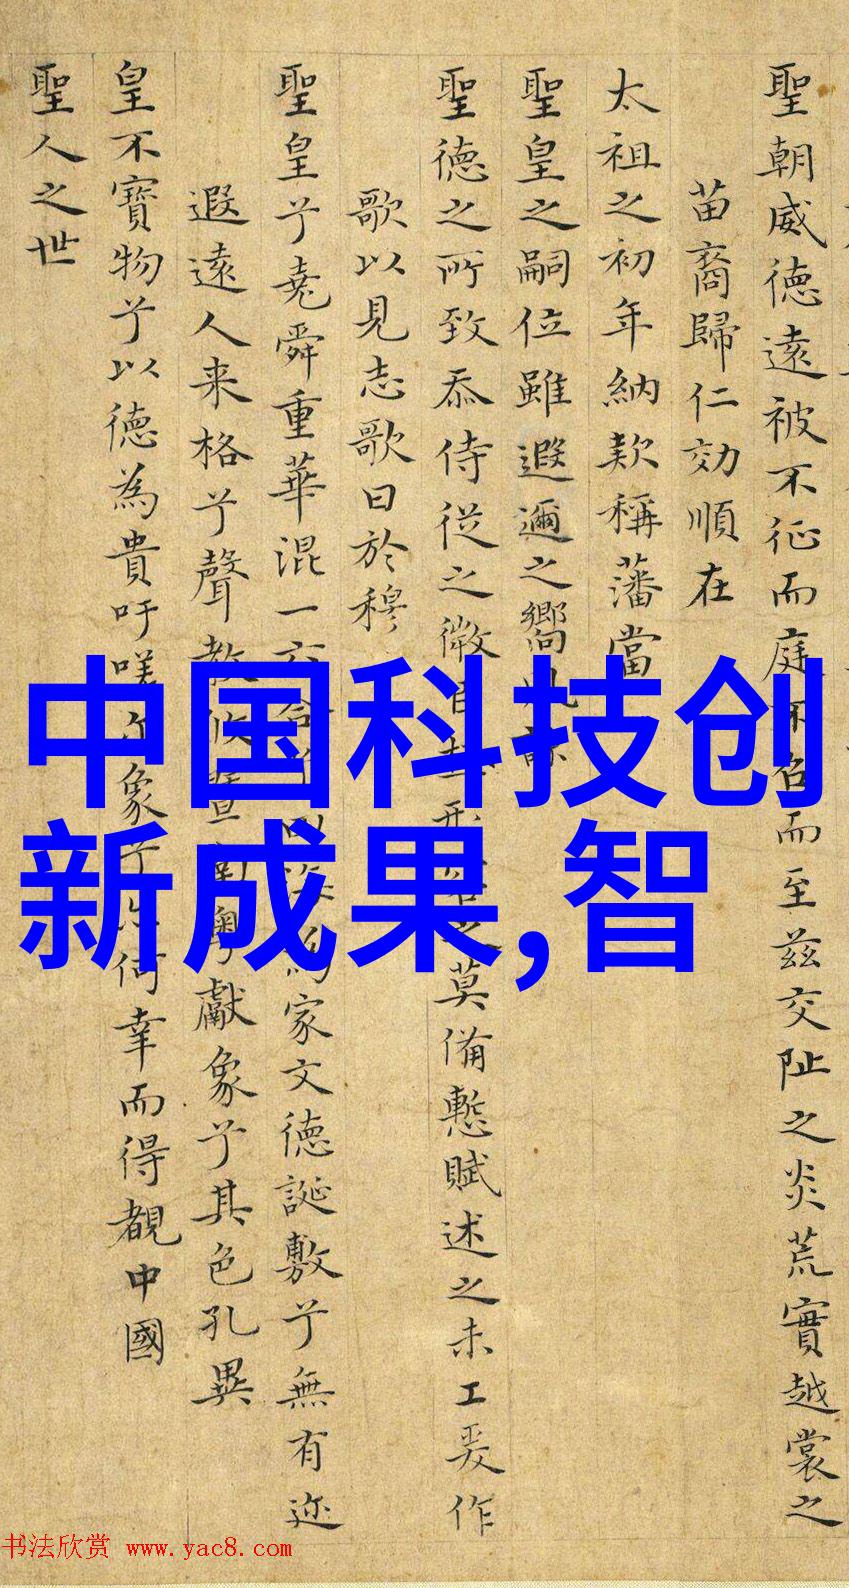 聖朝威德遠被不征而庭不召而至茲交阯之炎荒實越裳之
苗裔歸仁効順在
太祖之初年納款稱藩當
聖皇之嗣位雖遐邇之嚮
聖德之所致忝侍從之微臣之莫備慙賦述之未工爰作
歌以見志歌曰於穆
聖皇兮堯舜重華混一六合兮為家文德誕敷兮無有迩
遐遠人来格兮聲教攸暨南粤獻象兮其色孔異
皇不寶物兮以德為貴吁嗟象兮何幸而得覩中國
聖人之世
中国科技创
新成果,智
书法欣赏 www.yac8.com